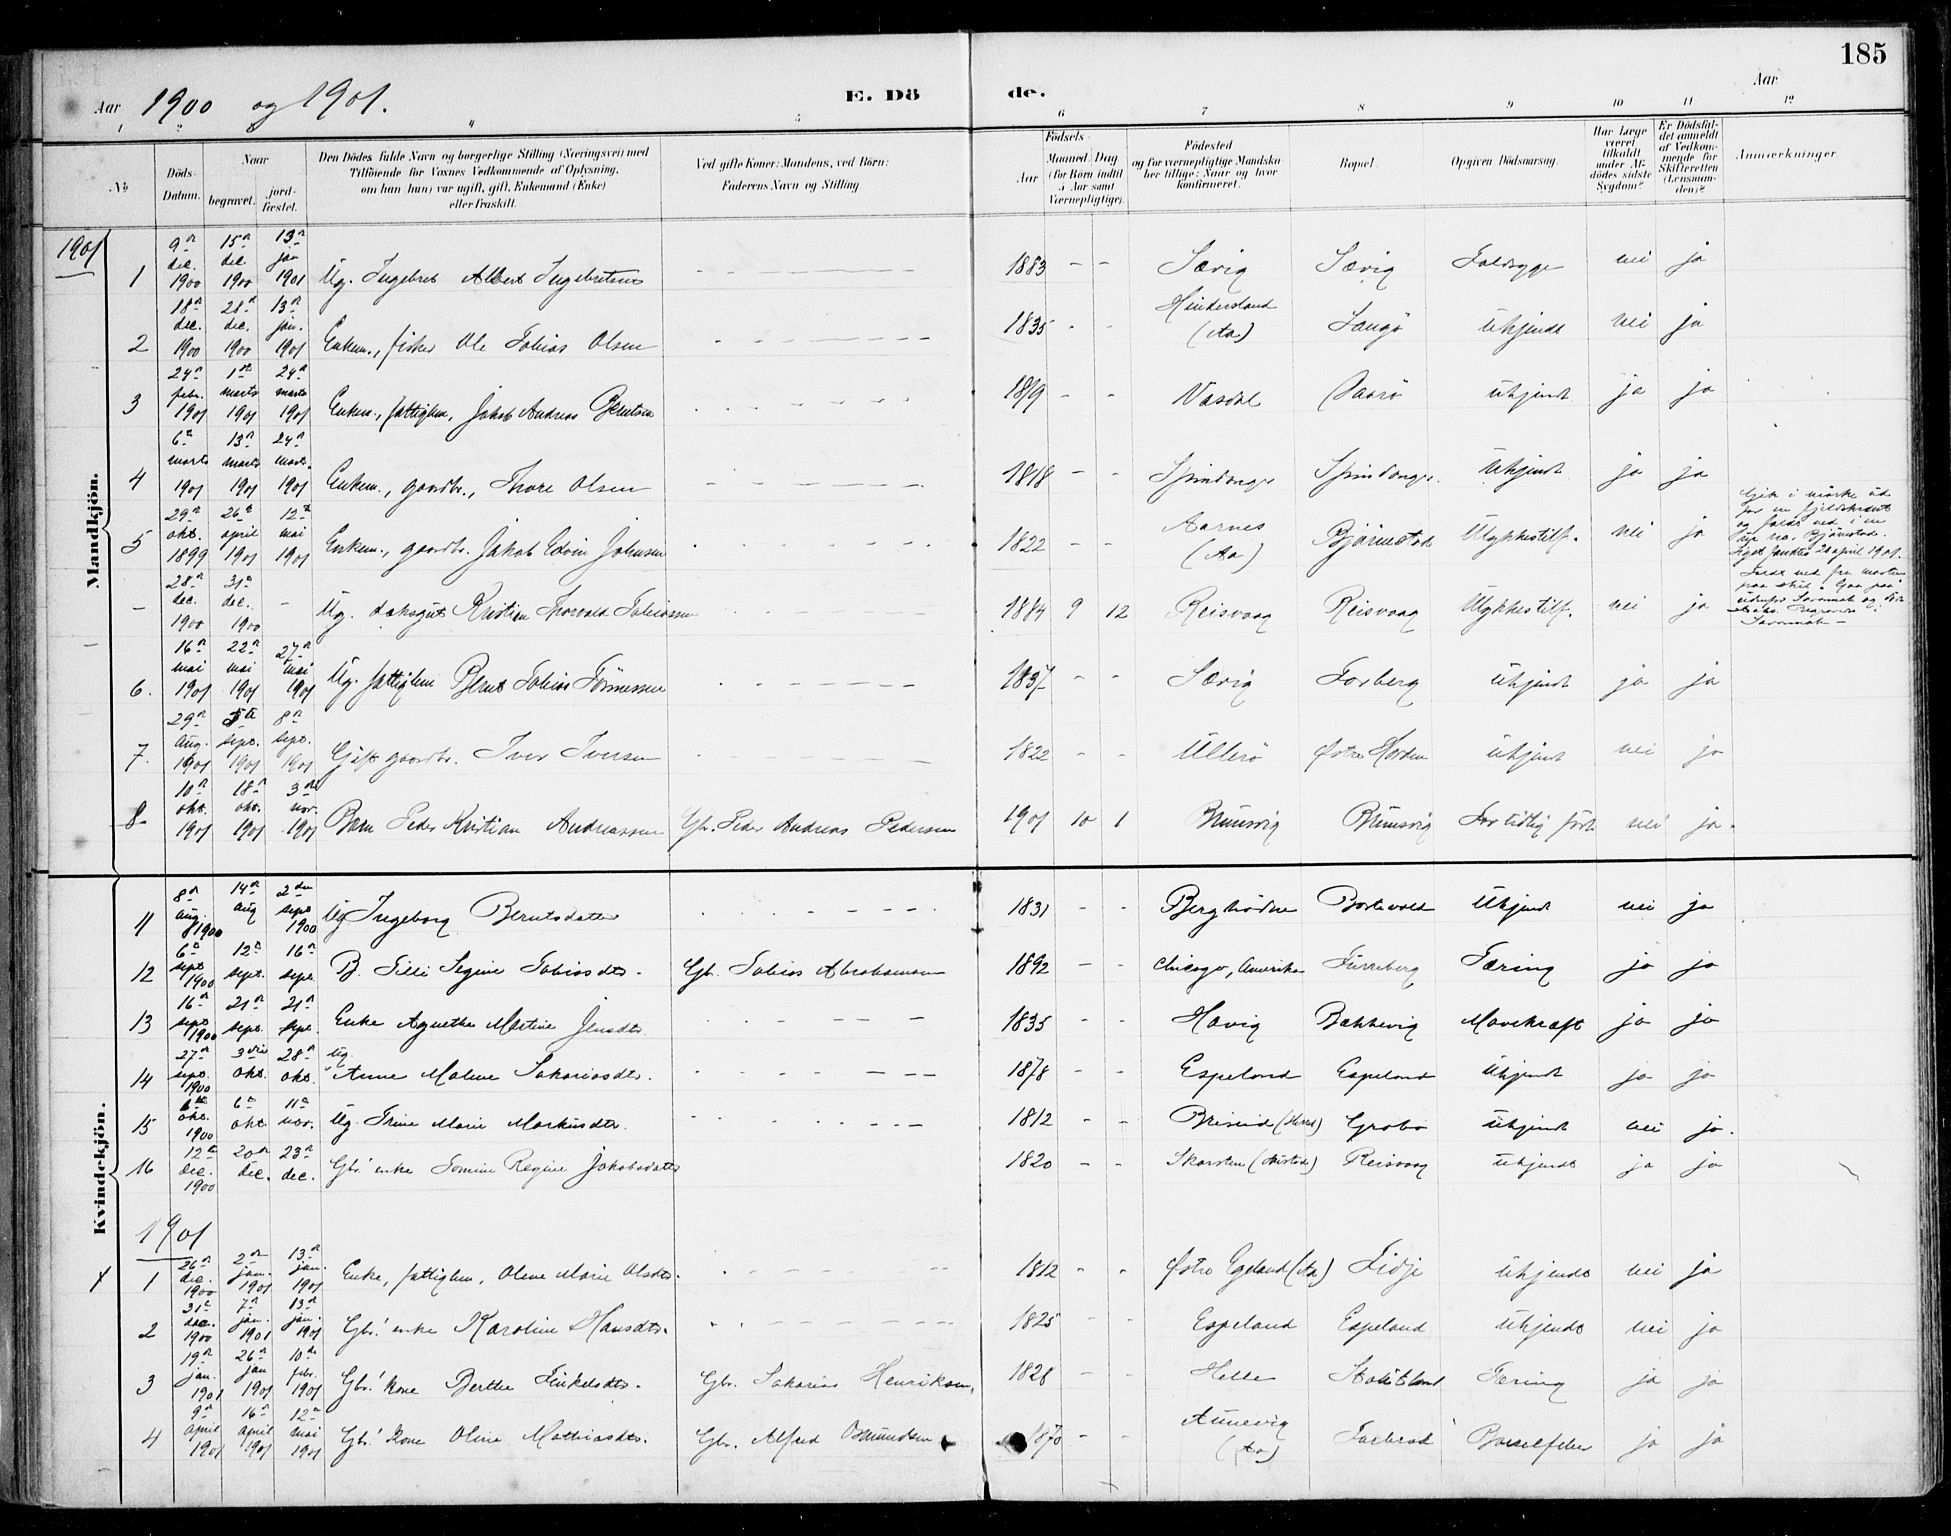 185
Aar 1900 og 1901. E. Dö de. Aar
1 2 4 5 6 7 8 9 10 11 12
No. Döds-Datum. Naar begravet. jord-fæstet. Den Dödes fulde Navn og borgerlige Stilling (Næringsvei) med Tilföiende for Voxnes Vedkommende af Oplysning, om han (hun) var ugift, gift, Enkemand (Enke) eller fraskilt. Ved gifte Koner: Mandens, ved Börn: Faderens Navn og Stilling Födsels- Aar Maaned Dag (for Börn indtil 5 Aar samt Værnepligtige). Födested og for værnepligtige Mandskaber tillige: Naar og hvor konfirmeret. Bopæl. Opgiven Dödsaarsag. Har Læge været tilkaldt under Afdödes sidste Sygdom? Er Dödsfaldet anmeldt af Vedkommende for Skifteretten (Lensmanden)? Anmærkninger
Mandkjön.
1901
1 9de dec. 1900 15de dec. 1900 13de jan 1901 Ug. Ingebret Albert Ingebretsen 1883 - - Sævig Sævig Faldsyge nei ja
2 18de dec. 1900 28de dec. 1900 13de jan. 1901 Enkem., fisker Ole Tobias Olsen 1835 - - Hindersland (Aa) Langø Ukjendt nei ja
3 24de febr. 1901 1ste marts 1901 24de marts 1901 Enkem., fattiglem, Jakob Andreas Berntsen 1819 - - Vasdal ukjendt ja ja
4 6te marts 1901 13de marts 1901 24de marts. 1901 Enkem., gaardbr., Thore Olsen 1818 - - Spindanger Spindanger. Ukjendt ja ja
5 29de okt. 1899 26de april 1901 12te mai 1901 Enkem., gaardbr. Jakob Edvin Johnsen 1822 - - Aarnes (Aa) Bjørnestad Ulykkestilf. nei ja Gik i mørke ud for en fjeldskrænt og faldt ned i en ... Bjørnestad. Liget fandtes 26 april 1901.
- 28de dec. 1900 31te dec. 1900 - Ug. dæksgut Kristian Thorvald Tobiassen 1884 9 12 Reisvaag Reisvaag Ulykkestilf. nei ja Faldt ned fra masten paa skib "Gaa paa" udenfor Savannah og ... Begravet i Savannah -
6. 16de mai 1901 22de mai 1901 27de mai 1901 Ug. fattiglem Bernt Tobias Tønnessen 1837 - - Sævig Farberg ukjendt ja ja
7. 29de aug. 1901 5te sept. 1901 8de sept. 1901 Gift gaardbr. Iver Iversen 1822 - - Ullerø Østre Horden ukjent nei ja
8 10de okt. 1901 18de okt. 1901 3die nov. 1901 Barn Peder Kristian Andreassen Gbr. Peder Andreas Pedersen 1901 10 1 Brunsvig Brunsvig For tidlig født nei ja.
Kvindekjön.
11 8de aug. 1900 14de aug 2den sept 1900 Ug. Ingeborg Berntsdatter 1831 - - Berghødne Ukjendt nei ja
12 6te sept 1900 12te sept. 16de sept. B. Tilli Segine Tobiasdtr. Gbr. Tobias Abrahamsen 1892 - - Chicago, Amerika Furreberg Tæring ja ja
13 16de sept 1900 21de sept. 21de sept. Enke Agnethe Martine Jensdtr. 1835 - - Havig Bakkevig Mavekræft ja ja
14 27de sept. 1900 3die okt. 28de okt. Ug. Anne Malene Sakariasdtr. 1878 - - Espeland Espeland Ukjendt ja ja
15 okt. 1900 6te okt. 11te nov. Ug. Trine Marie Markusdtr. 1812 - - Briseid (Herred) Grabø ukjendt nei ja.
16 12te dec. 1900 20de dec. 23de dec. Gbr.' enke Tomine Regine Jakobsdatter 1820 - - Skarsten (Austad) Reisvaag ukjendt ja ja
1901
1 26de dec. 1900 2den jan. 1901 13de jan. 1901 Enke, fattiglem, Olene Marie Olsdtr. 1812 - - Østre Egeland (Aa) Lidje ukjendt nei ja
2 31te dec. 1900 7de jan. 1901 13de jan. 1901 Gbr.' enke Karoline Hansdtr. 1825 - - Espeland Espeland ukjendt nei ja
3 19de jan. 1901 26de jan 1901 10de febr. 1901 Gbr.' kone Berthe Eriksdtr. Gbr. Sakarias Henriksen. 1828 - - Helle Tæring ja ja
4 9de april 1901 16de april 1901 12te mai 1901 Gbr.' kone Oline Mathiasdtr. Gbr. Alfred Osmundsen 1870 - - Aunevig (Aa) Barselfeber ja ja